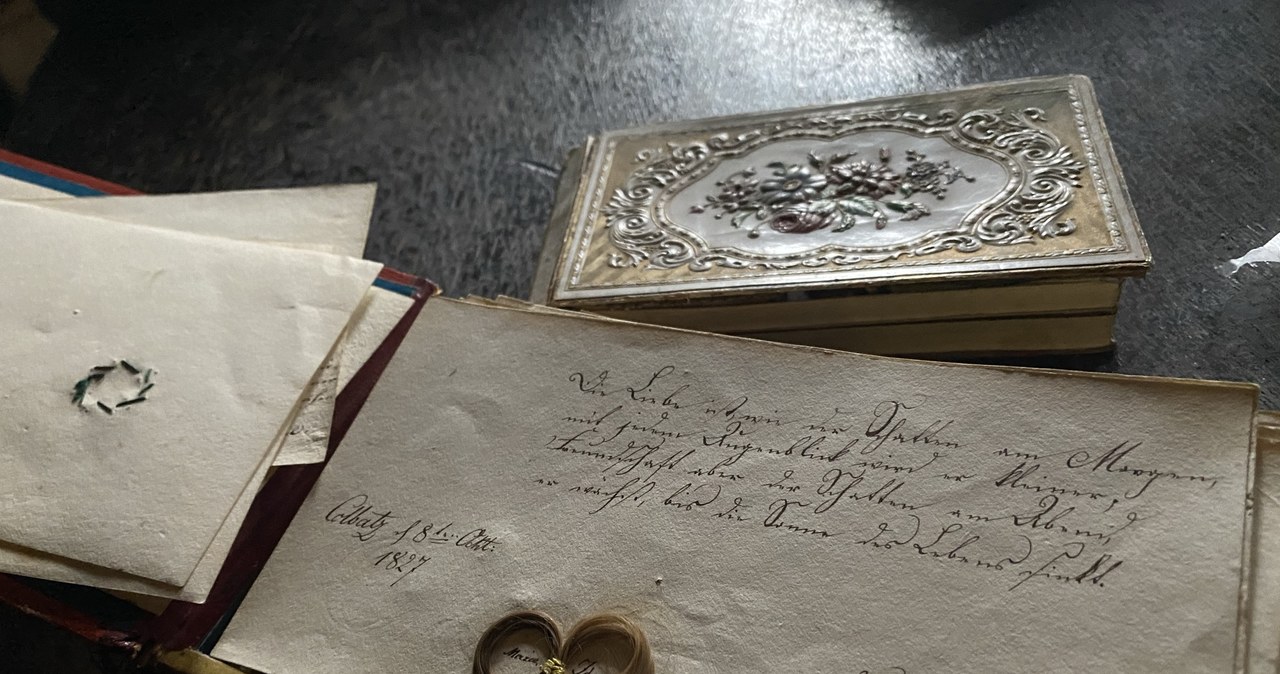 Die Liebe ist wie der Schatten am Morgen,
mit jedem Augenblick wird er kleiner;
Freundschaft aber der Schatten am Abend,
er wächst, bis die Sonne des Lebens sinkt.
Colbatz 8te Oktt:
1827